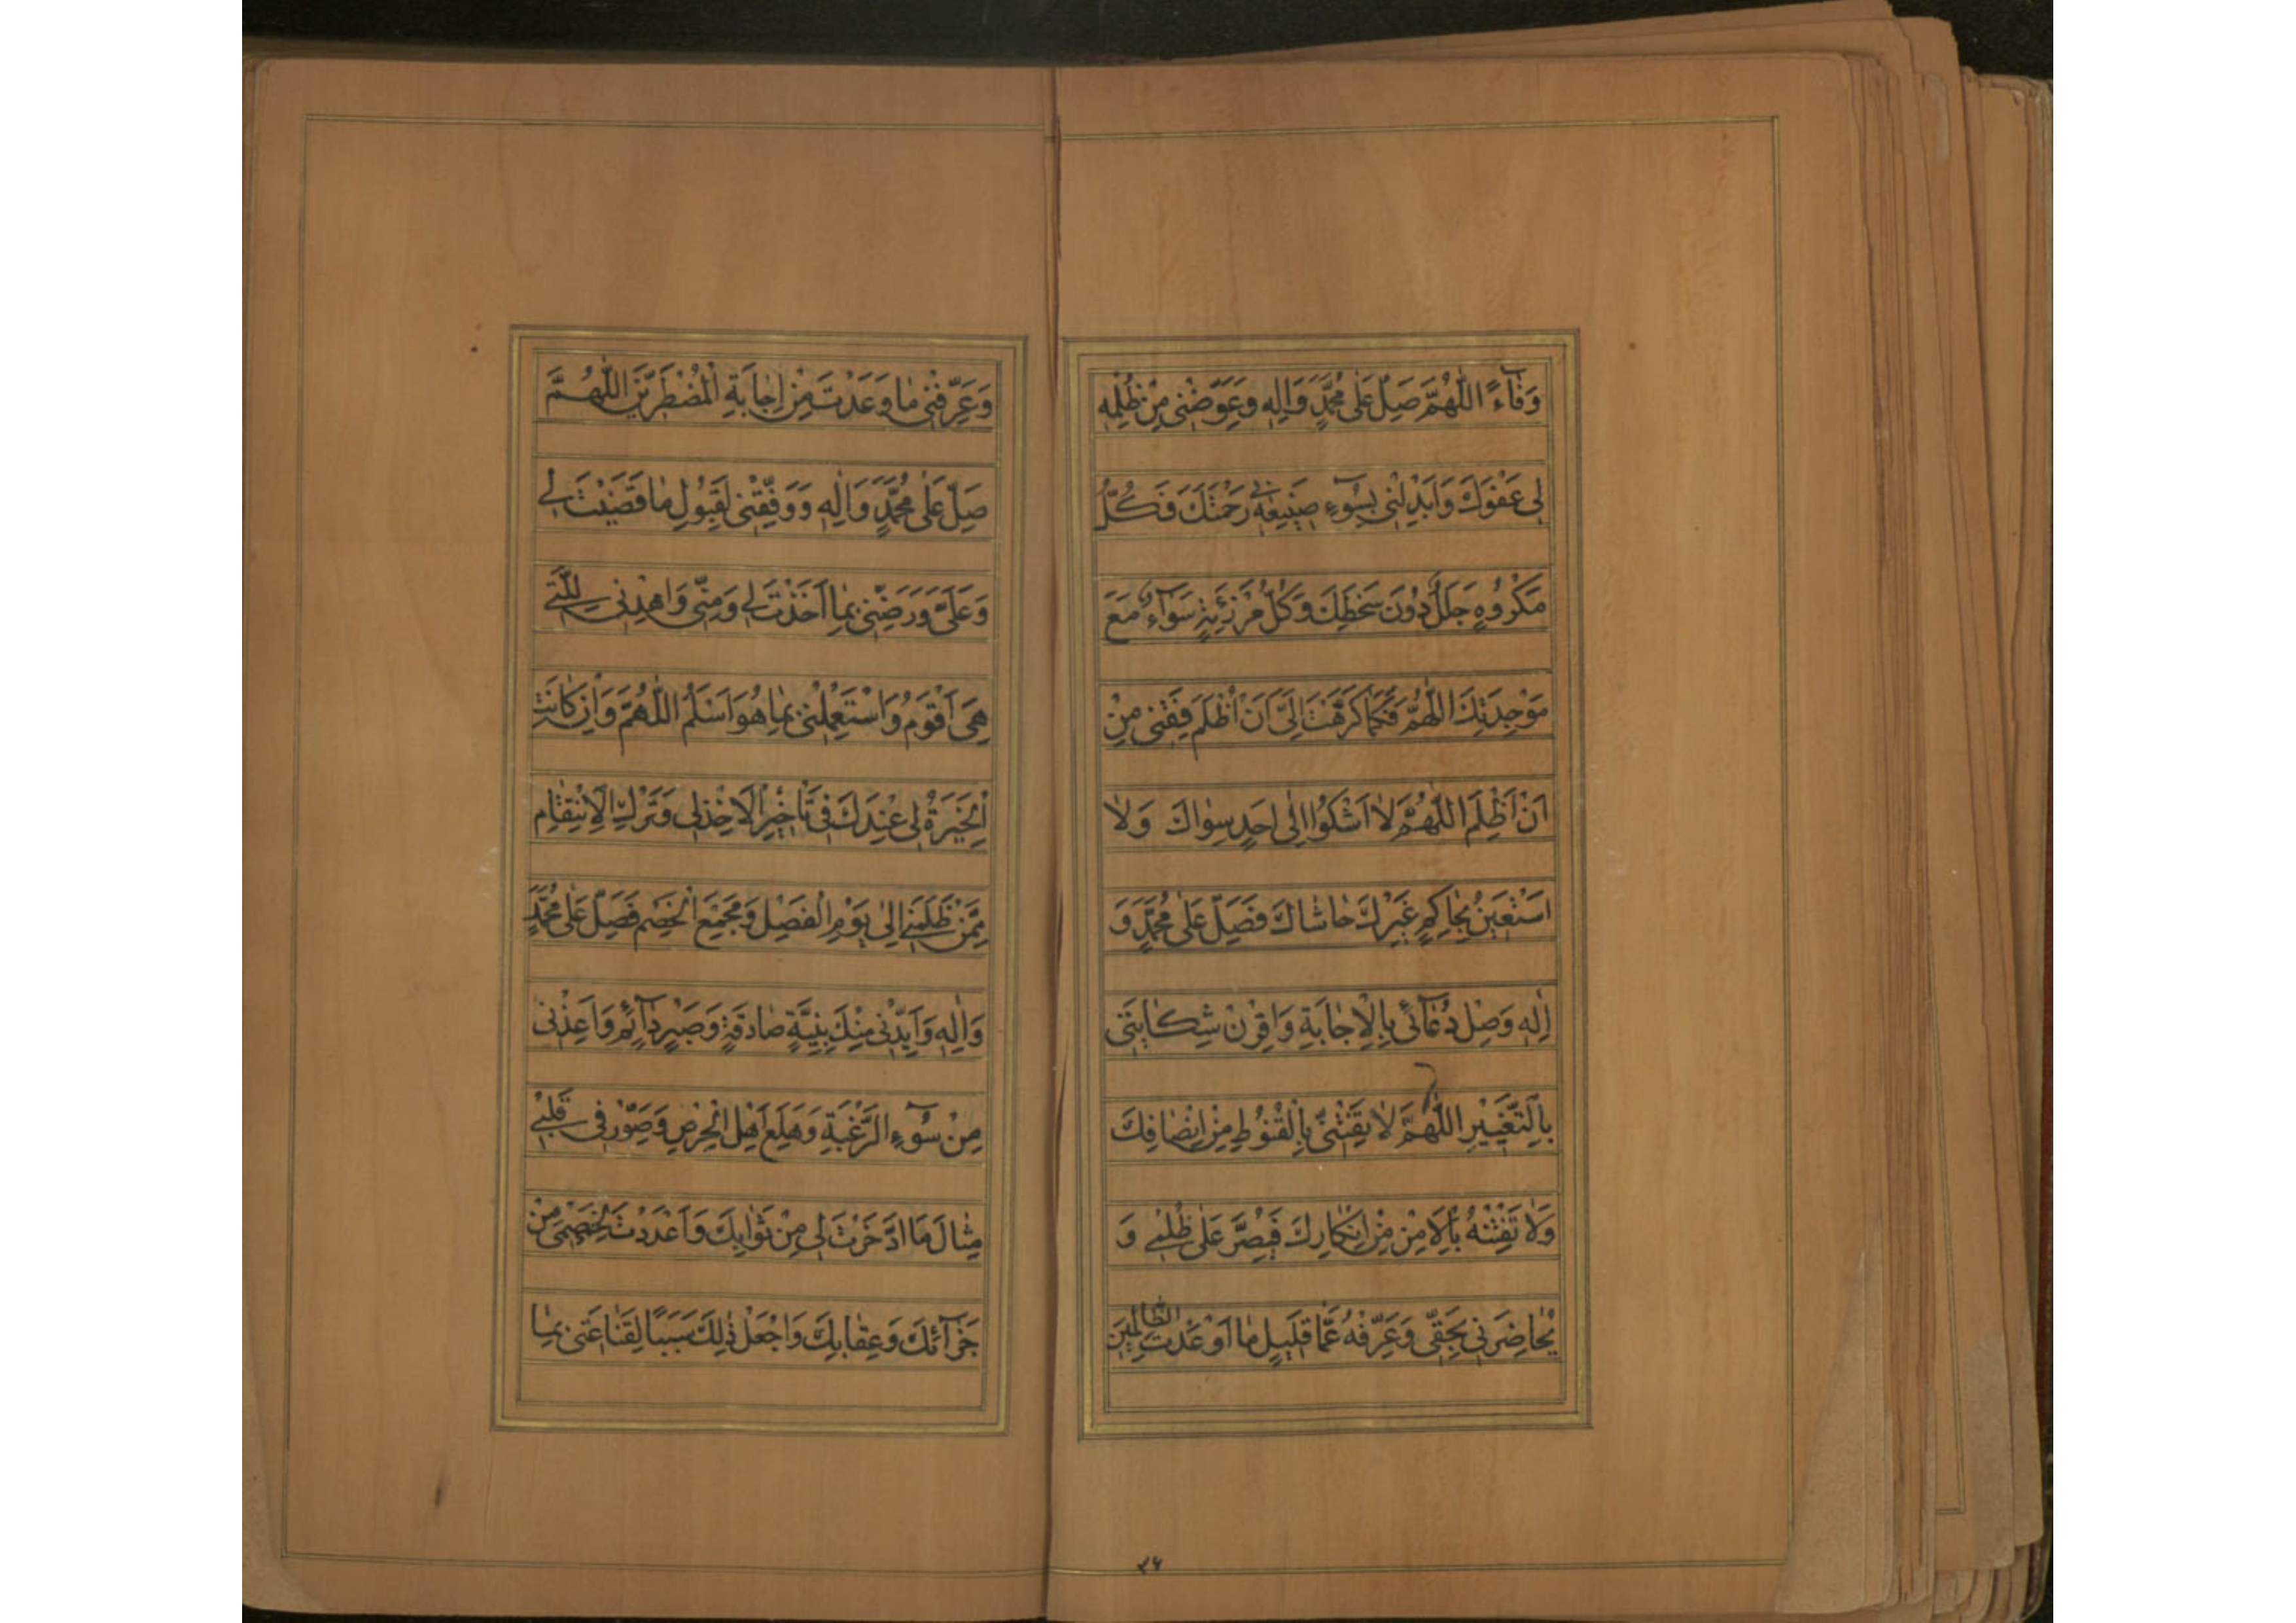 وَفَآءً اللّٰهُمَّ صَلِّ عَلٰى مُحَمَّدٍ وَاٰلِهٖ وَعَوِّضْنى مِنْ ظُلْمِهٖ
لى عَفْوَكَ وَاَبْدِلْنى بِسُوٓءِ صَنيعِهٖ بى رَحْمَتَكَ فَكُلُّ
مَكْرُوهٍ جَلَلٌ دُونَ سَخَطِكَ وَكُلُّ مَرْزِئَةٍ سَوَآءٌ مَعَ
مَوْجِدَتِكَ اللّٰهُمَّ فَكَمٰا كَرَّهْتَ اِلَىَّ اَنْ اُظْلَمَ فَقِنى مِنْ
اَنْ اَظْلِمَ اللّٰهُمَّ لٰا اَشْكُوا اِلٰى اَحَدٍ سِوٰاكَ وَلٰا
اَسْتَعينُ بِحٰاكِمٍ غَيْرِكَ حٰاشٰاكَ فَصَلِّ عَلٰى مُحَمَّدٍ وَ
اٰلِهٖ وَصِلْ دُعٰآئى بِالْاِجٰابَةِ وَاقْرِنْ شِكٰايَتى
بِالتَّغْييرِ اللّٰهُمَّ لٰا تَفْتِنّى بِالْقُنُوطِ مِنْ اِنْصٰافِكَ
وَلٰا تَفْتِنْهُ بِالْاَمْنِ مِنْ اِنْكٰارِكَ فَيُصِرَّ عَلٰى ظُلْمى وَ
يُحٰاضِرَنى بِحَقّى وَعَرِّفْهُ عَمّٰا قَليلٍ مٰا اَوْعَدْتَ الظّٰالِمينَ
۳۶
وَعَرِّفْنى مٰا وَعَدْتَ مِنْ اِجٰابَةِ الْمُضْطَرّينَ اللّٰهُمَّ
صَلِّ عَلٰى مُحَمَّدٍ وَاٰلِهٖ وَوَفِّقْنى لِقَبُولِ مٰا قَضَيْتَ لى
وَعَلَىَّ وَرَضِّنى بِمٰا اَخَذْتَ لى وَمِنّى وَاهْدِنى لِلَّتى
هِىَ اَقْوَمُ وَاسْتَعْمِلْنى بِمٰا هُوَ اَسْلَمُ اللّٰهُمَّ وَاِنْ كٰانَتِ
الْخِيَرَةُ لى عِنْدَكَ فى تَاْخيرِ الْاَخْذِ لى وَتَرْكِ الْاِنْتِقٰامِ
مِمَّنْ ظَلَمَنى اِلٰى يَوْمِ الْفَصْلِ وَمَجْمَعِ الْخَصْمِ فَصَلِّ عَلٰى مُحَمَّدٍ
وَاٰلِهٖ وَاَيِّدْنى مِنْكَ بِنِيَّةٍ صٰادِقَةٍ وَصَبْرٍ دٰآئِمٍ وَاَعِذْنى
مِنْ سُوٓءِ الرَّغْبَةِ وَهَلَعِ اَهْلِ الْحِرْصِ وَصَوِّرْ فى قَلْبى
مِثٰالَ مَا ادَّخَرْتَ لى مِنْ ثَوٰابِكَ وَاَعْدَدْتَ لِخَصْمى مِنْ
جَزٰآئِكَ وَعِقٰابِكَ وَاجْعَلْ ذٰلِكَ سَبَبًا لِقَنٰاعَتى بِمٰا